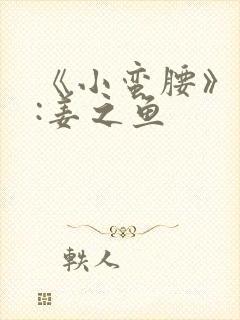 《小蛮腰》
:姜之鱼
轶人